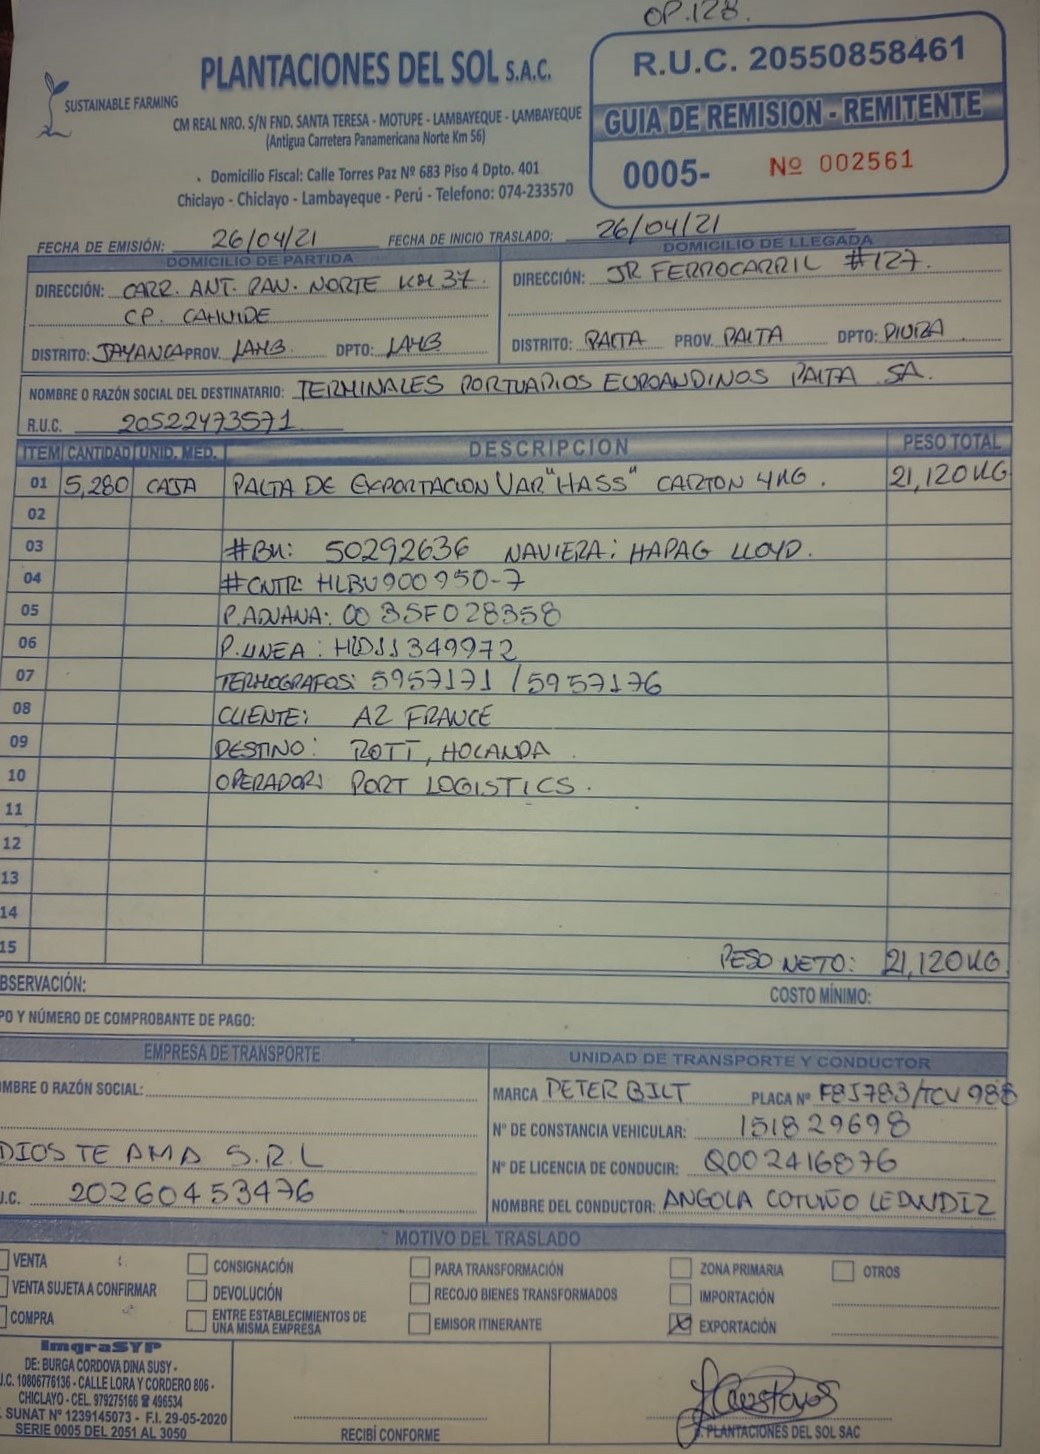 OP.128.
PLANTACIONES DEL SOL S.A.C.
SUSTAINABLE FARMING
CM REAL NRO. S/N FND. SANTA TERESA - MOTUPE - LAMBAYEQUE - LAMBAYEQUE
(Antigua Carretera Panamericana Norte Km 56)
Domicilio Fiscal: Calle Torres Paz Nº 683 Piso 4 Dpto. 401
Chiclayo - Chiclayo - Lambayeque - Perú - Telefono: 074-233570
R.U.C. 20550858461
GUIA DE REMISION - REMITENTE
0005- Nº 002561
FECHA DE EMISIÓN: 26/04/21 FECHA DE INICIO TRASLADO: 26/04/21
DOMICILIO DE PARTIDA
DIRECCIÓN: CARR. ANT. PAN. NORTE KM 37.
CP. CAHUIDE
DISTRITO: JAYANCA PROV. LAMB. DPTO: LAMB
DOMICILIO DE LLEGADA
DIRECCIÓN: JR FERROCARRIL #127.
DISTRITO: PAITA PROV. PAITA DPTO: PIURA
NOMBRE O RAZÓN SOCIAL DEL DESTINATARIO: TERMINALES PORTUARIOS EUROANDINOS PAITA SA.
R.U.C. 20522473571
ITEM CANTIDAD UNID. MED. DESCRIPCION PESO TOTAL
01 5,280 CAJA PALTA DE EXPORTACION VAR "HASS" CARTON 4KG. 21,120KG
02
03 #BK: 50292636 NAVIERA: HAPAG LLOYD.
04 #CNTR: HLBU900950-7
05 P.ADUANA: 00 BSF028358
06 P.LINEA: HLDJJ349972
07 TERMOGRAFOS: 5957171 / 5957176
08 CLIENTE: AZ FRANCE
09 DESTINO: ROTT, HOLANDA
10 OPERADOR: PORT LOGISTICS.
11
12
13
14
15 PESO NETO: 21,120KG
BSERVACIÓN:
COSTO MÍNIMO:
PO Y NÚMERO DE COMPROBANTE DE PAGO:
EMPRESA DE TRANSPORTE
OMBRE O RAZÓN SOCIAL:
DIOS TE AMA S.R.L
.C. 20260453476
UNIDAD DE TRANSPORTE Y CONDUCTOR
MARCA PETER BILT PLACA Nº F8J783/TCV 988
Nº DE CONSTANCIA VEHICULAR: 151829698
Nº DE LICENCIA DE CONDUCIR: Q002416876
NOMBRE DEL CONDUCTOR: ANGOLA COTUÑO
MOTIVO DEL TRASLADO
VENTA CONSIGNACIÓN PARA TRANSFORMACIÓN ZONA PRIMARIA OTROS
VENTA SUJETA A CONFIRMAR DEVOLUCIÓN RECOJO BIENES TRANSFORMADOS IMPORTACIÓN
COMPRA ENTRE ESTABLECIMIENTOS DE UNA MISMA EMPRESA EMISOR ITINERANTE EXPORTACIÓN
ImgraSYP
DE: BURGA CORDOVA DINA SUSY -
.C. 10806776136 - CALLE LORA Y CORDERO 806 -
CHICLAYO - CEL. 979275166 ☎ 496534
SUNAT Nº 1239145073 - F.I. 29-05-2020
SERIE 0005 DEL 2051 AL 3050
RECIBÍ CONFORME
PLANTACIONES DEL SOL SAC